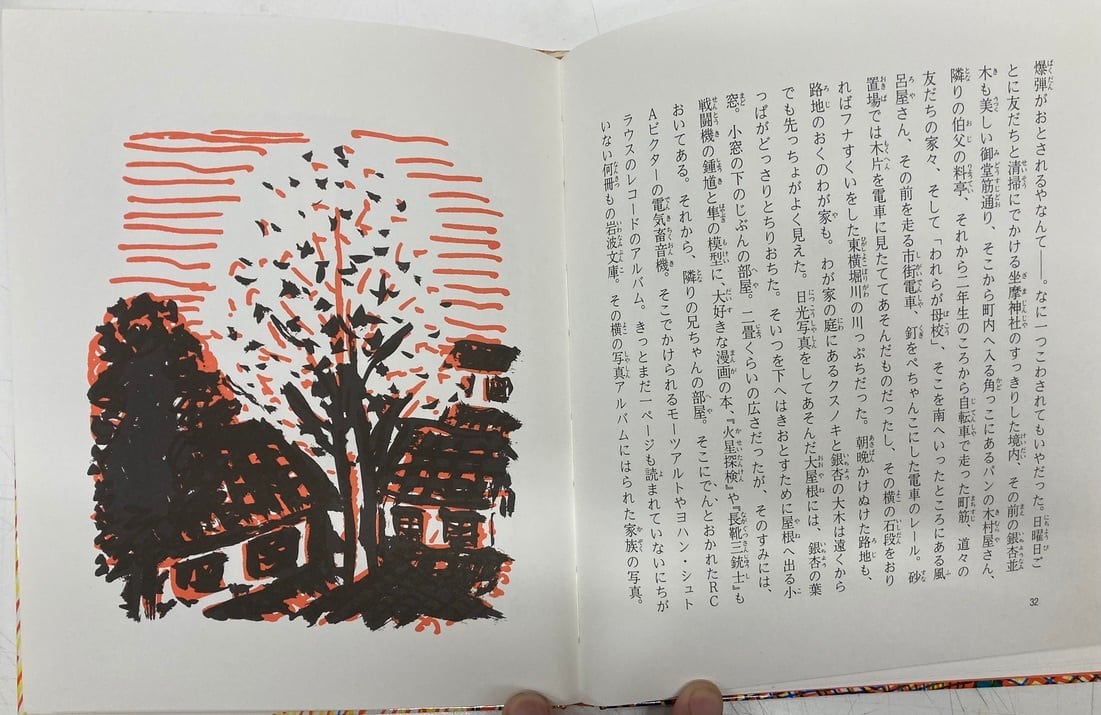 爆弾がおとされるやなんて――。なに一つこわされてもいやだった。日曜日ご
とに友だちと清掃にでかける坐摩神社のすっきりした境内、その前の銀杏並
木も美しい御堂筋通り、そこから町内へ入る角っこにあるパンの木村屋さん、
隣りの伯父の料亭、それから二年生のころから自転車で走った町筋、道々の
友だちの家々、そして「われらが母校」、そこを南へいったところにある風
呂屋さん、その前を走る市街電車、釘をぺちゃんこにした電車のレール。砂
置場では木片を電車に見たててあそんだものだったし、その横の石段をおり
ればフナすくいをした東横堀川の川っぷちだった。朝晩かけぬけた路地も、
路地のおくのわが家も。わが家の庭にあるクスノキと銀杏の大木は遠くから
でも先っちょがよく見えた。日光写真をしてあそんだ大屋根には、銀杏の葉
っぱがどっさりとちりおちた。そいつを下へはきおとすために屋根へ出る小
窓。小窓の下のじぶんの部屋。二畳くらいの広さだったが、そのすみには、
戦闘機の鍾馗と隼の模型に、大好きな漫画の本、『火星探検』や『長靴三銃士』も
おいてある。それから、隣りの兄ちゃんの部屋。そこにでんとおかれたRC
Aビクターの電気蓄音機。そこでかけられるモーツアルトやヨハン・シュト
ラウスのレコードのアルバム。きっとまだ一ページも読まれていないにちが
いない何冊もの岩波文庫。その横の写真アルバムにはられた家族の写真。
32